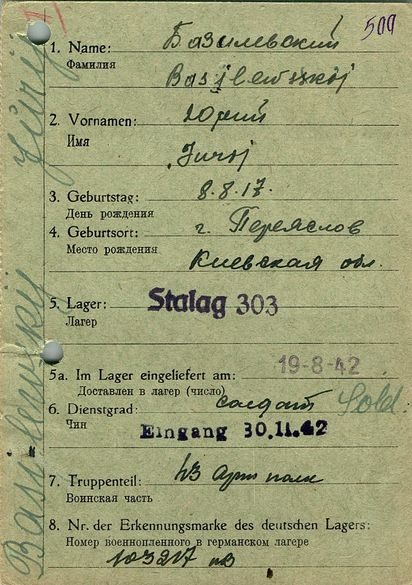 509
1. Name: Базилевский
Фамилия
2. Vornamen: Юрий
Имя
Juroj
3. Geburtstag: 8.8.17.
День рождения
4. Geburtsort: г. Переяслов
Место рождения
Киевская обл.
5. Lager: Stalag 303
Лагер
19-8-42
5a. Im Lager eingeliefert am:
Доставлен в лагер (число)
6. Dienstgrad: солдат Sold.
Чин
Eingang 30.11.42
7. Truppenteil: Арт полк
Воинская часть
8. Nr. der Erkennungsmarke des deutschen Lagers:
Номер военнопленного в германском лагере
103217